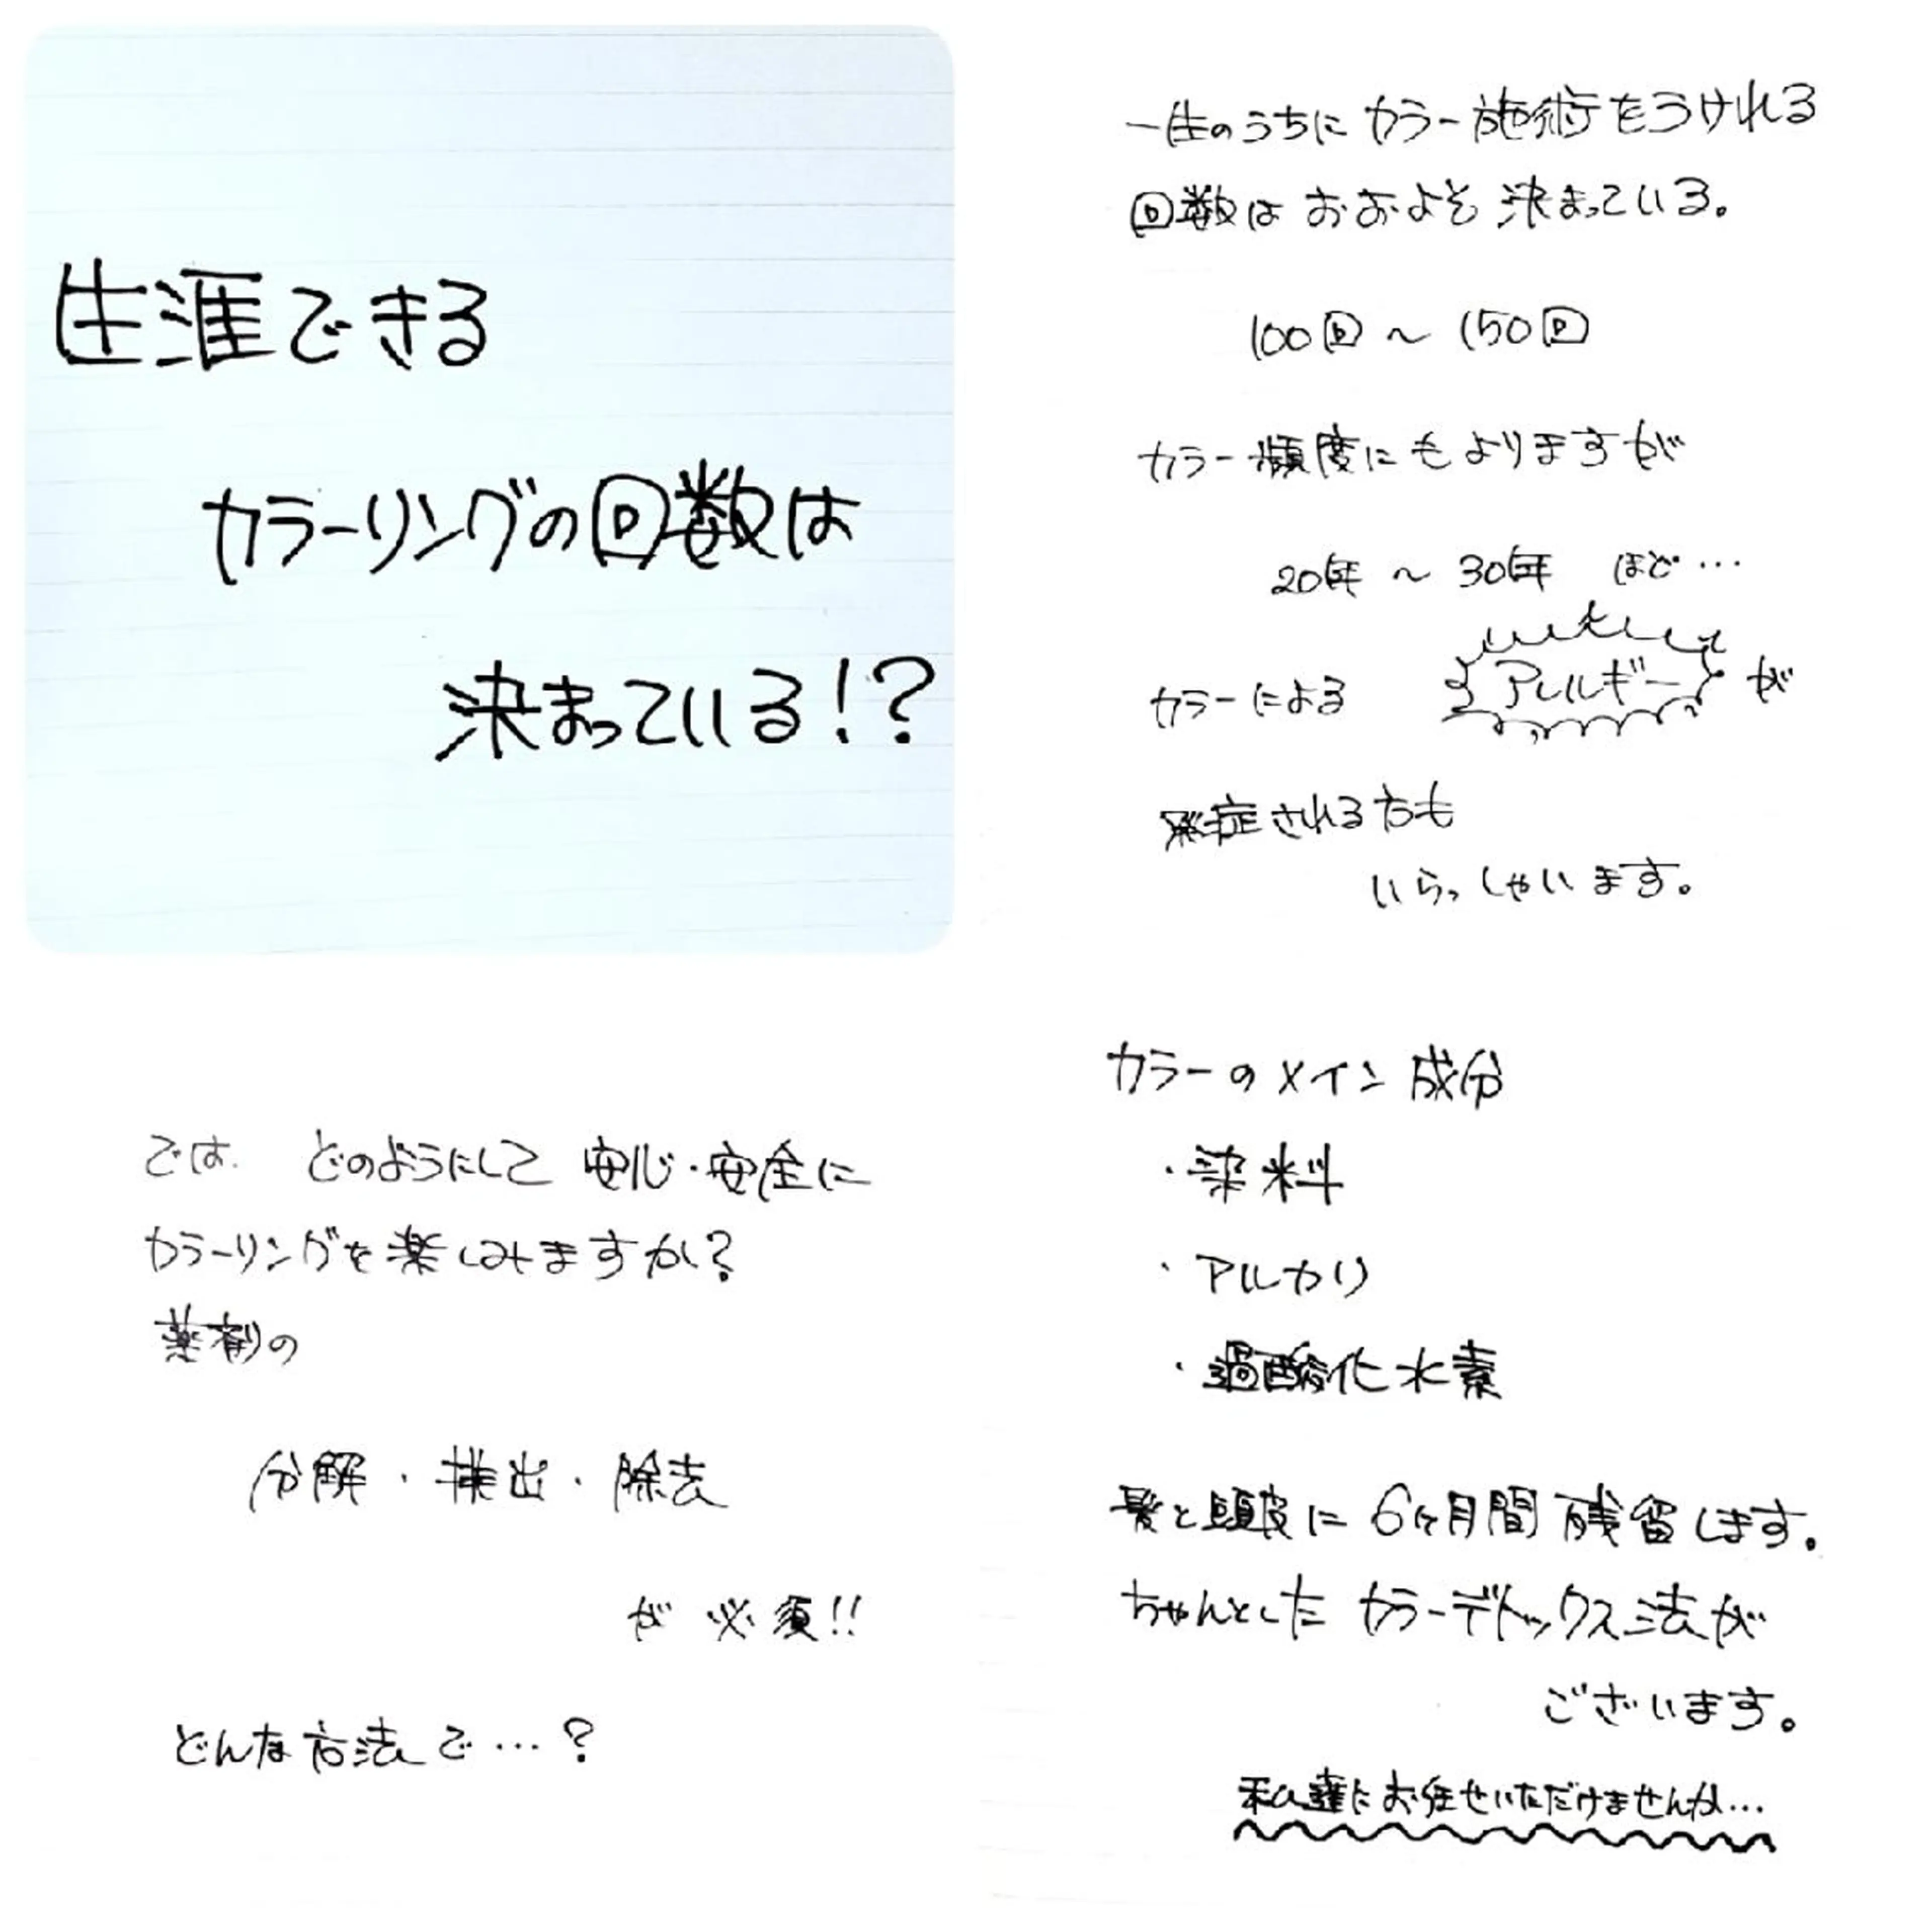 生涯できる
カラーリングの回数は
決まっている!?
一生のうちに カラー施術をうけれる
回数は おおよそ 決まっている。
100回 〜 150回
カラー頻度にもよりますが
20年 〜 30年 ほど…
カラーによる アレルギーが
発症される方も
いらっしゃいます。
では、 どのようにして 安心・安全に
カラーリングを楽しみますか?
薬剤の
分解・排出・除去
が 必須!!
どんな方法で…?
カラーのメイン成分
・染料
・アルカリ
・過酸化水素
髪と頭皮に 6ヶ月間 残留します。
ちゃんとした カラーデトックス法が
ございます。
私達にお任せいただけませんか…